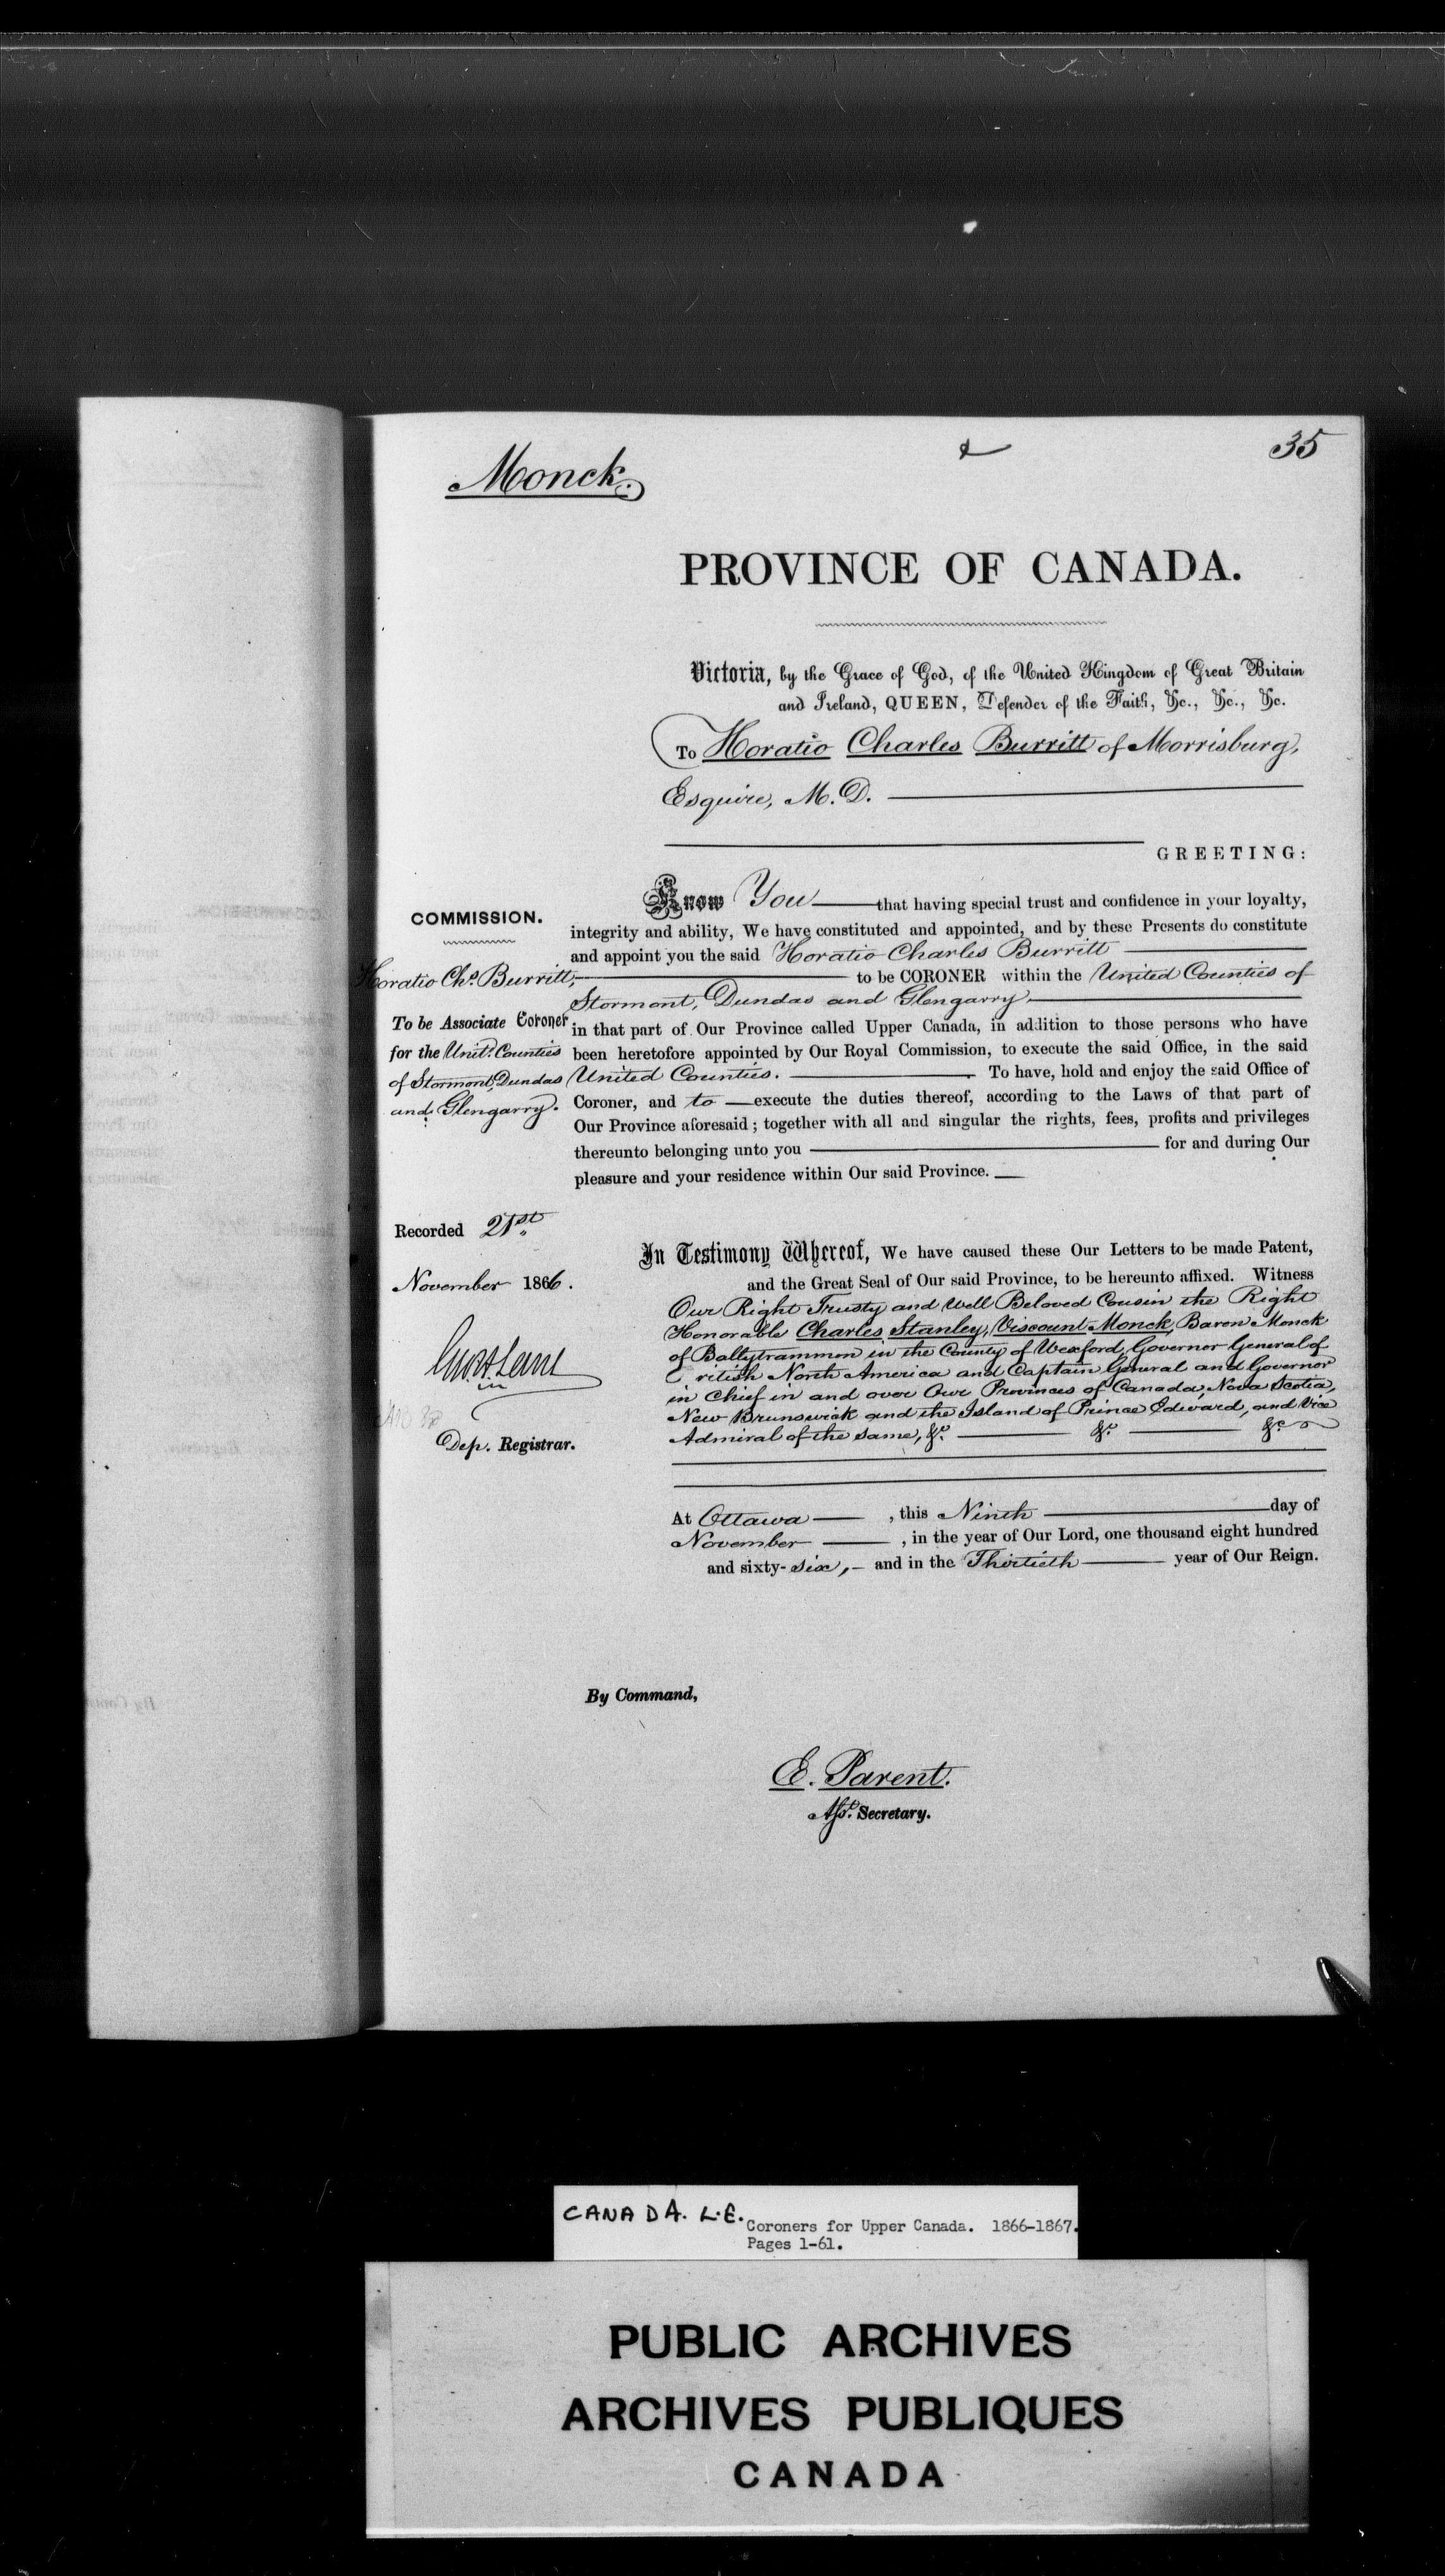 35
Monck.
PROVINCE OF CANADA.
Victoria, by the Grace of God, of the United Kingdom of Great Britain
and Ireland, QUEEN, Defender of the Faith, &c., &c., &c.
To Horatio Charles Burritt of Morrisburg,
Esquire, M.D.
GREETING:
COMMISSION.
Horatio Chs. Burritt,
To be Associate Coroner
for the Unitd. Counties
of Stormont, Dundas
and Glengarry.
Know You that having special trust and confidence in your loyalty,
integrity and ability, We have constituted and appointed, and by these Presents do constitute
and appoint you the said Horatio Charles Burritt
to be CORONER within the United Counties of
Stormont, Dundas and Glengarry
in that part of Our Province called Upper Canada, in addition to those persons who have
been heretofore appointed by Our Royal Commission, to execute the said Office, in the said
United Counties. To have, hold and enjoy the said Office of
Coroner, and to execute the duties thereof, according to the Laws of that part of
Our Province aforesaid; together with all and singular the rights, fees, profits and privileges
thereunto belonging unto you for and during Our
pleasure and your residence within Our said Province.
Recorded 21st
November 1866.
Dep. Registrar.
In Testimony Whereof, We have caused these Our Letters to be made Patent,
and the Great Seal of Our said Province, to be hereunto affixed. Witness
Our Right Trusty and Well Beloved Cousin the Right
Honorable Charles Stanley, Viscount Monck, Baron Monck
of Ballytrammon in the County of Wexford, Governor General of
British North America and Captain General and Governor
in Chief in and over Our Provinces of Canada, Nova Scotia,
New Brunswick and the Island of Prince Edward, and Vice
Admiral of the same, &c. &c. &c.
At Ottawa, this Ninth day of
November, in the year of Our Lord, one thousand eight hundred
and sixty-six, and in the Thirtieth year of Our Reign.
By Command,
E. Parent.
Asst. Secretary.
CANADA. L.E. Coroners for Upper Canada. 1866-1867.
Pages 1-61.
PUBLIC ARCHIVES
ARCHIVES PUBLIQUES
CANADA